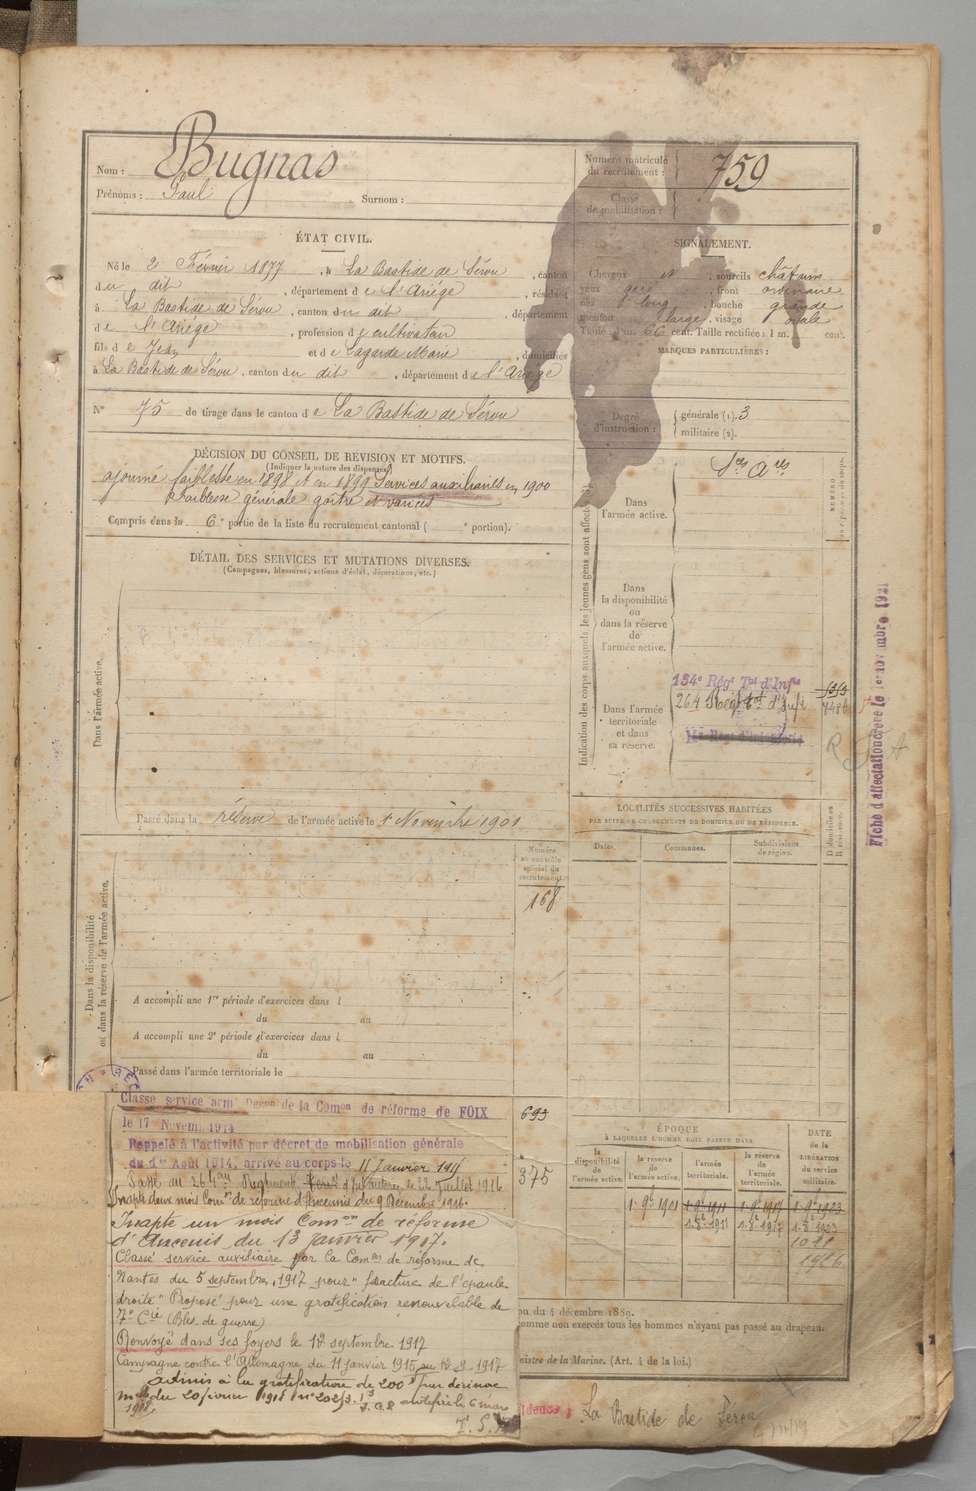 Nom : Bugnas
Prénoms : Paul Surnom :
Numéro matricule
du recrutement : 759
Classe
de mobilisation :
ÉTAT CIVIL.
Né le 2 Février 1877, à La Bastide de Sérou, canton
du dit, département de l'Ariège, résidant
à La Bastide de Sérou, canton du dit, département
de l'Ariège, profession de cultivateur
fils de Jean et de Lagarde Marie, domiciliés
à La Bastide de Sérou, canton du dit, département de l'Ariège
N° 75 de tirage dans le canton de La Bastide de Sérou
SIGNALEMENT.
Cheveux et sourcils châtains
yeux gris, front ordinaire
nez long, bouche grande
menton large, visage ovale
Taille : 1 m. 66 cent. Taille rectifiée : 1 m. cent.
MARQUES PARTICULIÈRES :
Degré
d'instruction :
générale (1). 3
militaire (2).
DÉCISION DU CONSEIL DE REVISION ET MOTIFS.
(Indiquer la nature des dispenses)
ajourné faiblesse en 1898 et en 1899 Services auxiliaires en 1900
faiblesse générale goître et varices
Compris dans la 6e partie de la liste du recrutement cantonal ( e portion).
DÉTAIL DES SERVICES ET MUTATIONS DIVERSES.
(Campagnes, blessures, actions d'éclat, décorations, etc.)
Dans l'armée active.
Passé dans la réserve de l'armée active le 1 Novembre 1901
Indication des corps auxquels les jeunes gens sont affectés
Dans
l'armée active.
Sces Aires
Dans
la disponibilité
ou
dans la réserve
de
l'armée active.
Dans l'armée
territoriale
et dans
sa réserve.
134e Régt Tal d'Infie
264 Régt d'Infie
NUMÉRO
Fiche d'affectation créée le 1er novembre 1921
LOCALITÉS SUCCESSIVES HABITÉES
PAR SUITE DE CHANGEMENTS DE DOMICILE OU DE RÉSIDENCE.
Dates.
Communes.
Subdivisions
de région.
D domicile
R résidence.
Numéro
au contrôle
spécial du
recrutement.
168
Dans la disponibilité
ou dans la réserve de l'armée active.
A accompli une 1re période d'exercices dans l
du au
A accompli une 2e période d'exercices dans l
du au
Passé dans l'armée territoriale le
693
375
Classé service armé Décon de la Comon de réforme de FOIX
le 17 Novem. 1914
Rappelé à l'activité par décret de mobilisation générale
du 1er Août 1914, arrivé au corps le 11 Janvier 1915
Passé au 264ème Régiment d'Infanterie, le 22 Juillet 1916
Inapte deux mois Comon de réforme d'Ancenis du 9 Décembre 1916.
Inapte un mois Comon de réforme
d'Ancenis du 13 janvier 1917.
Classé service auxiliaire par la Comon de réforme de
Nantes du 5 septembre 1917 pour " fracture de l'épaule
droite " Proposé pour une gratification renouvelable de
7e Cie (Bles. de guerre)
Renvoyé dans ses foyers le 12 septembre 1917
Campagne contre l'Allemagne du 11 janvier 1915 au 12 9 1917
admis à la gratification de 200 f par décision
mlle du 20 février 1918 notifié le 6 mars
1918.
ÉPOQUE
À LAQUELLE L'HOMME DOIT PASSER DANS
la
disponibilité
de
l'armée active.
la réserve
de
l'armée active.
l'armée
territoriale.
la réserve
de
l'armée
territoriale.
DATE
de la
LIBÉRATION
du service
militaire.
1-9bre 1901 1-9bre 1911 1-9bre 1917 1-9bre 1923
1-8bre 1911 1-8bre 1917 1-8bre 1923
1926
on du 4 décembre 1889.
omme non exercés tous les hommes n'ayant pas passé au drapeau.
nistre de la Marine. (Art. 4 de la loi.)
idence : La Bastide de Sérou